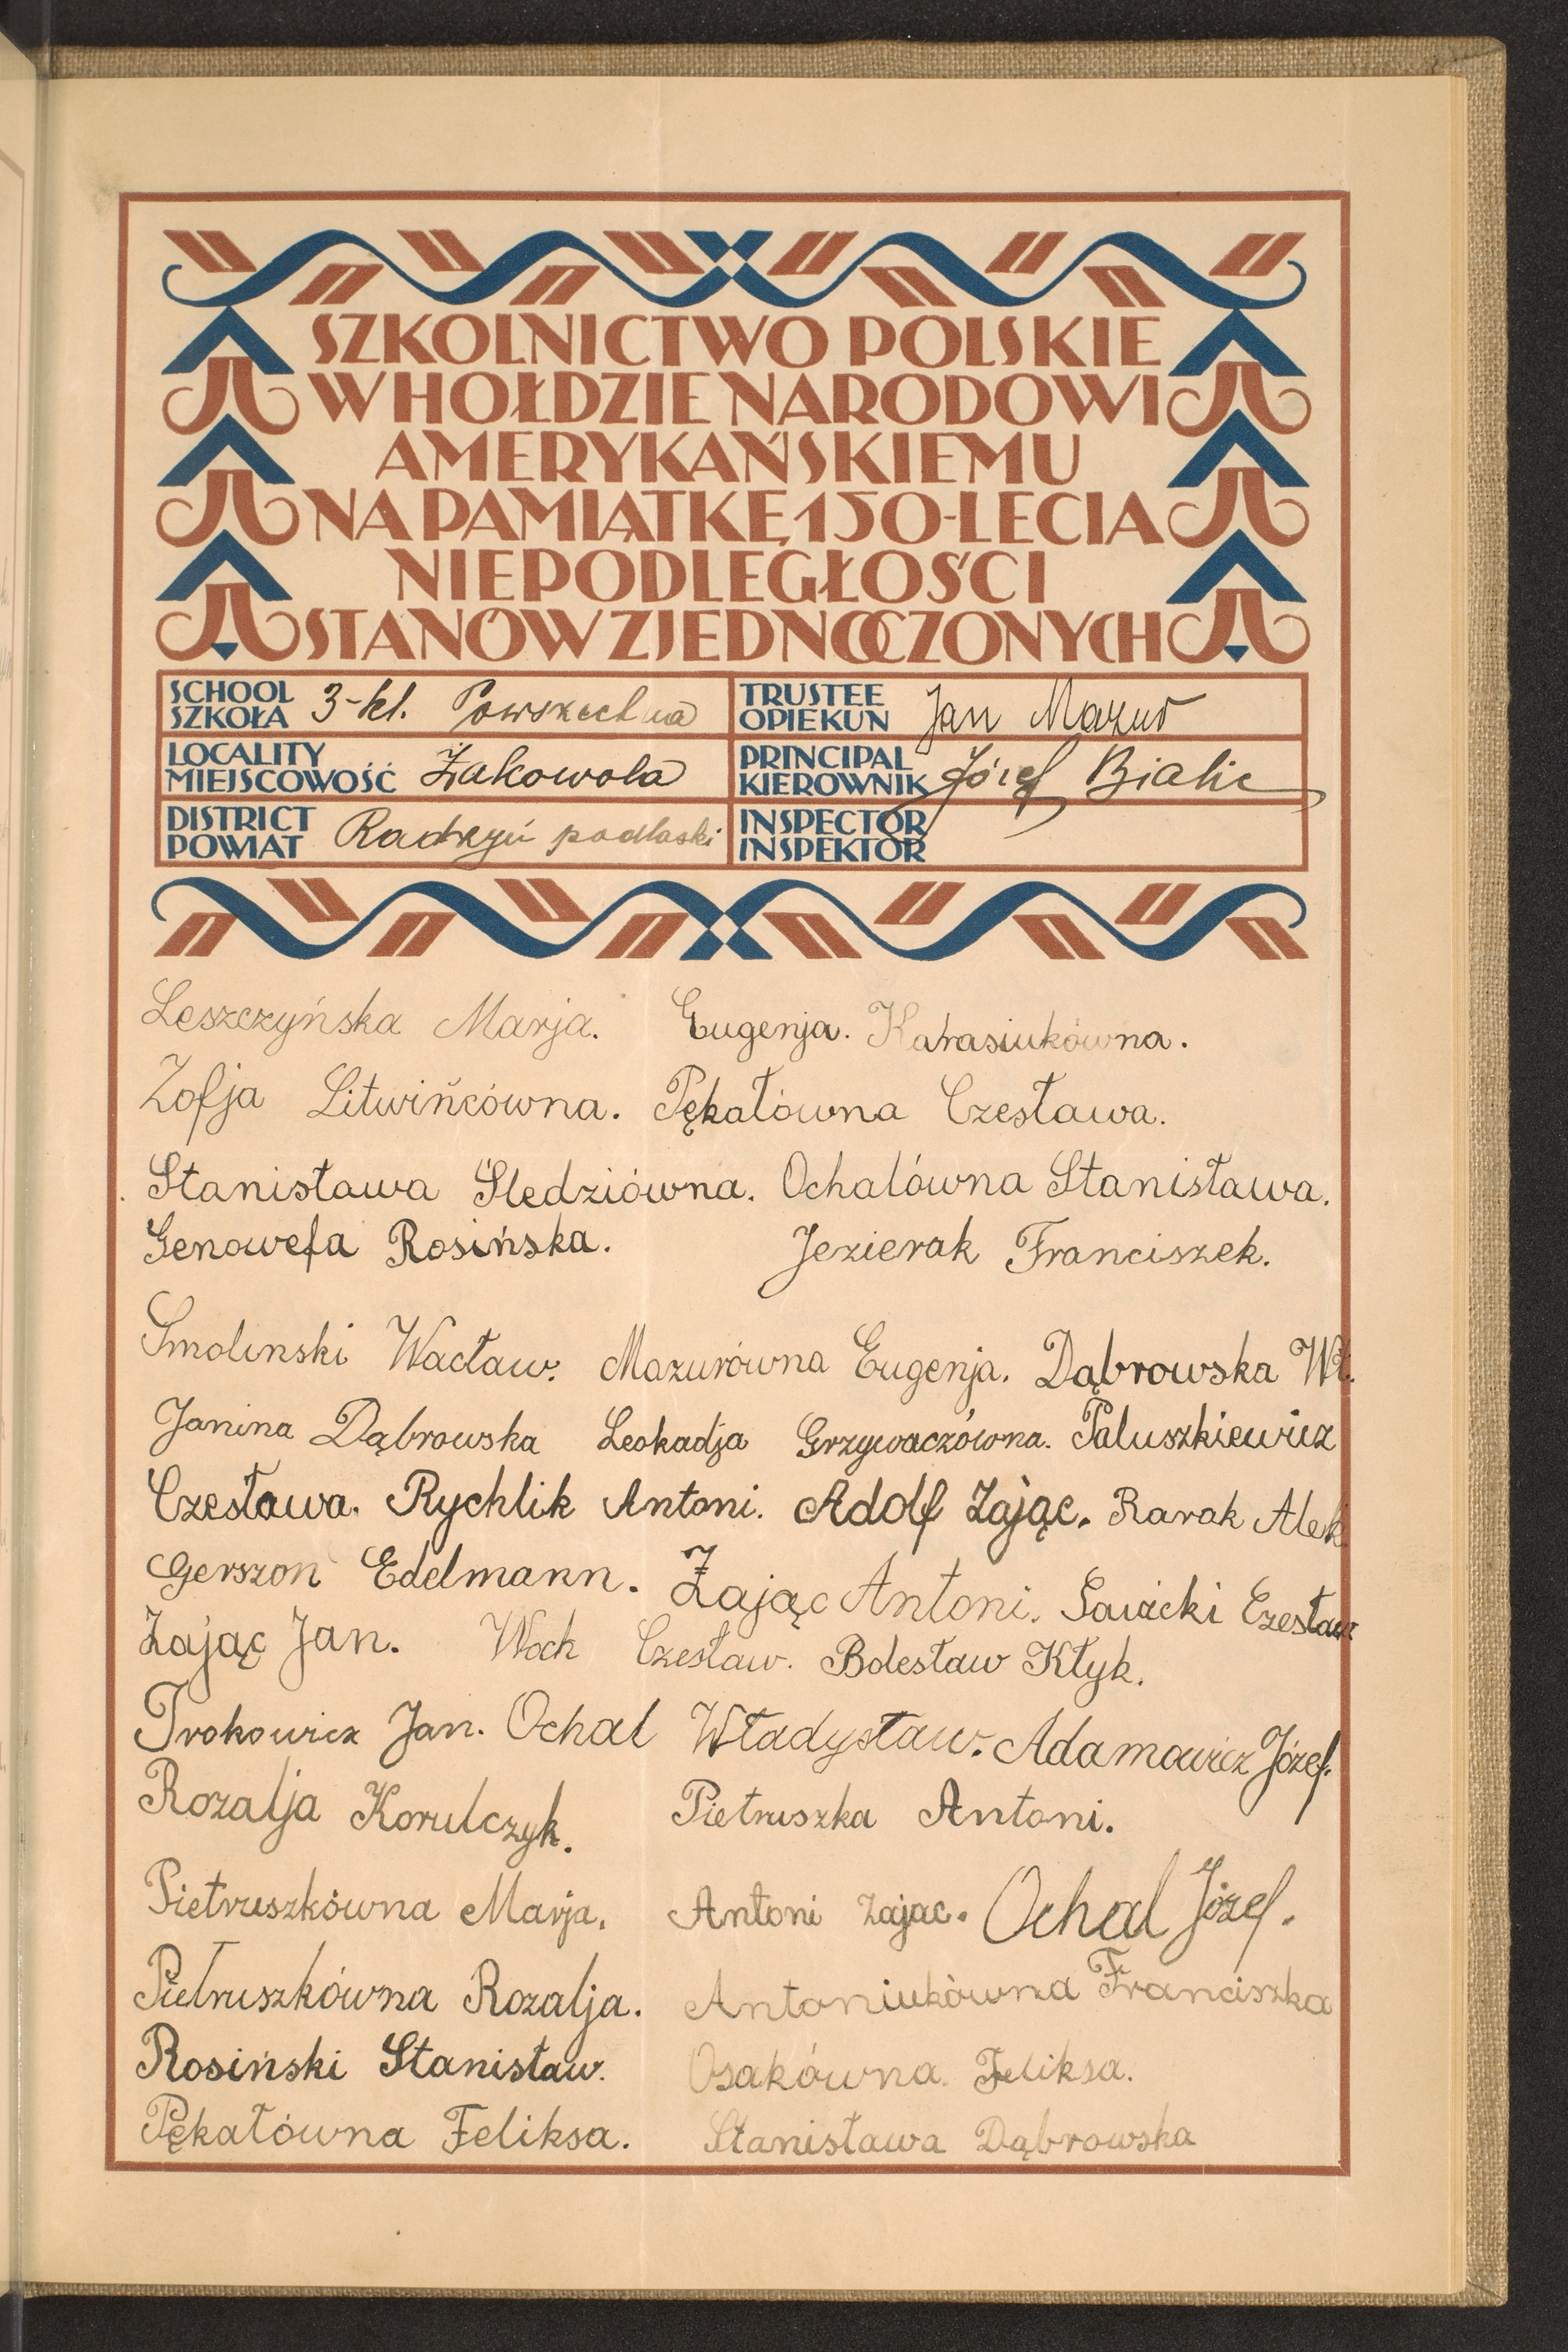 SZKOLNICTWO POLSKIE
W HOŁDZIE NARODOWI
AMERYKAŃSKIEMU
NA PAMIĄTKĘ 150-LECIA
NIEPODLEGŁOŚCI
STANÓW ZJEDNOCZONYCH
SCHOOL
SZKOŁA 3-kl. Powszechna
TRUSTEE
OPIEKUN Jan Mazur
LOCALITY
MIEJSCOWOŚĆ Żakowola
PRINCIPAL
KIEROWNIK Józef
DISTRICT
POWIAT Radzyń podlaski
INSPECTOR
INSPEKTOR
Leszczyńska Marja. Eugenja. Karasiukówna.
Zofja Litwińcówna. Pękałówna Czesława.
Stanisława Śledziówna. Ochalówna Stanisława.
Genowefa Rosińska. Jezierak Franciszek.
Smolinski Wacław. Mazurówna Eugenja. Dąbrowska Wł.
Janina Dąbrowska Leokadja Grzywaczówna. Paluszkiewicz
Czesława. Rychlik Antoni. Adolf Zając. Rarak Alek.
Gerszon Edelmann. Zając Antoni. Sawicki Czesław
Zając Jan. Woch Czesław. Bolesław Kłyk.
Jan. Ochal Władysław. Adamowicz Józef.
Rozalja Korulczyk. Pietruszka Antoni.
Pietruszkówna Marja. Antoni Zajac. Ochal Józef.
Pietruszkówna Rozalja. Antoniukówna Franciszka
Rosiński Stanisław. Osakówna. Feliksa.
Pękałówna Feliksa. Stanisława Dąbrowska